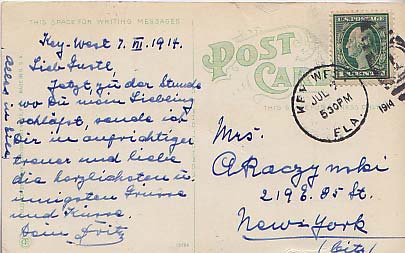 THIS SPACE FOR WRITING MESSAGES.
Key-West 7. VII. 1914.
Lieb Guste,
Jetzt, zu der Stunde
wo Du mein Liebling
schläfst, sende ich
Dir in aufrichtiger
treuer und Liebe
die herzlichsten u.
innigsten Grüsse
und Küsse.
Dein Fritz
Alles in Eile
POST CARD
U.S. POSTAGE
1 CENT 1
KEY WEST
JUL 7
530PM
1914
FLA.
Mrs.
A Raczynski
219 E. 85 St.
New-York
(City)